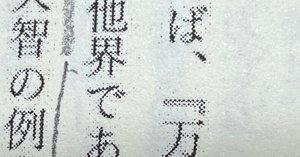 ば、『万
他界であ
智の例